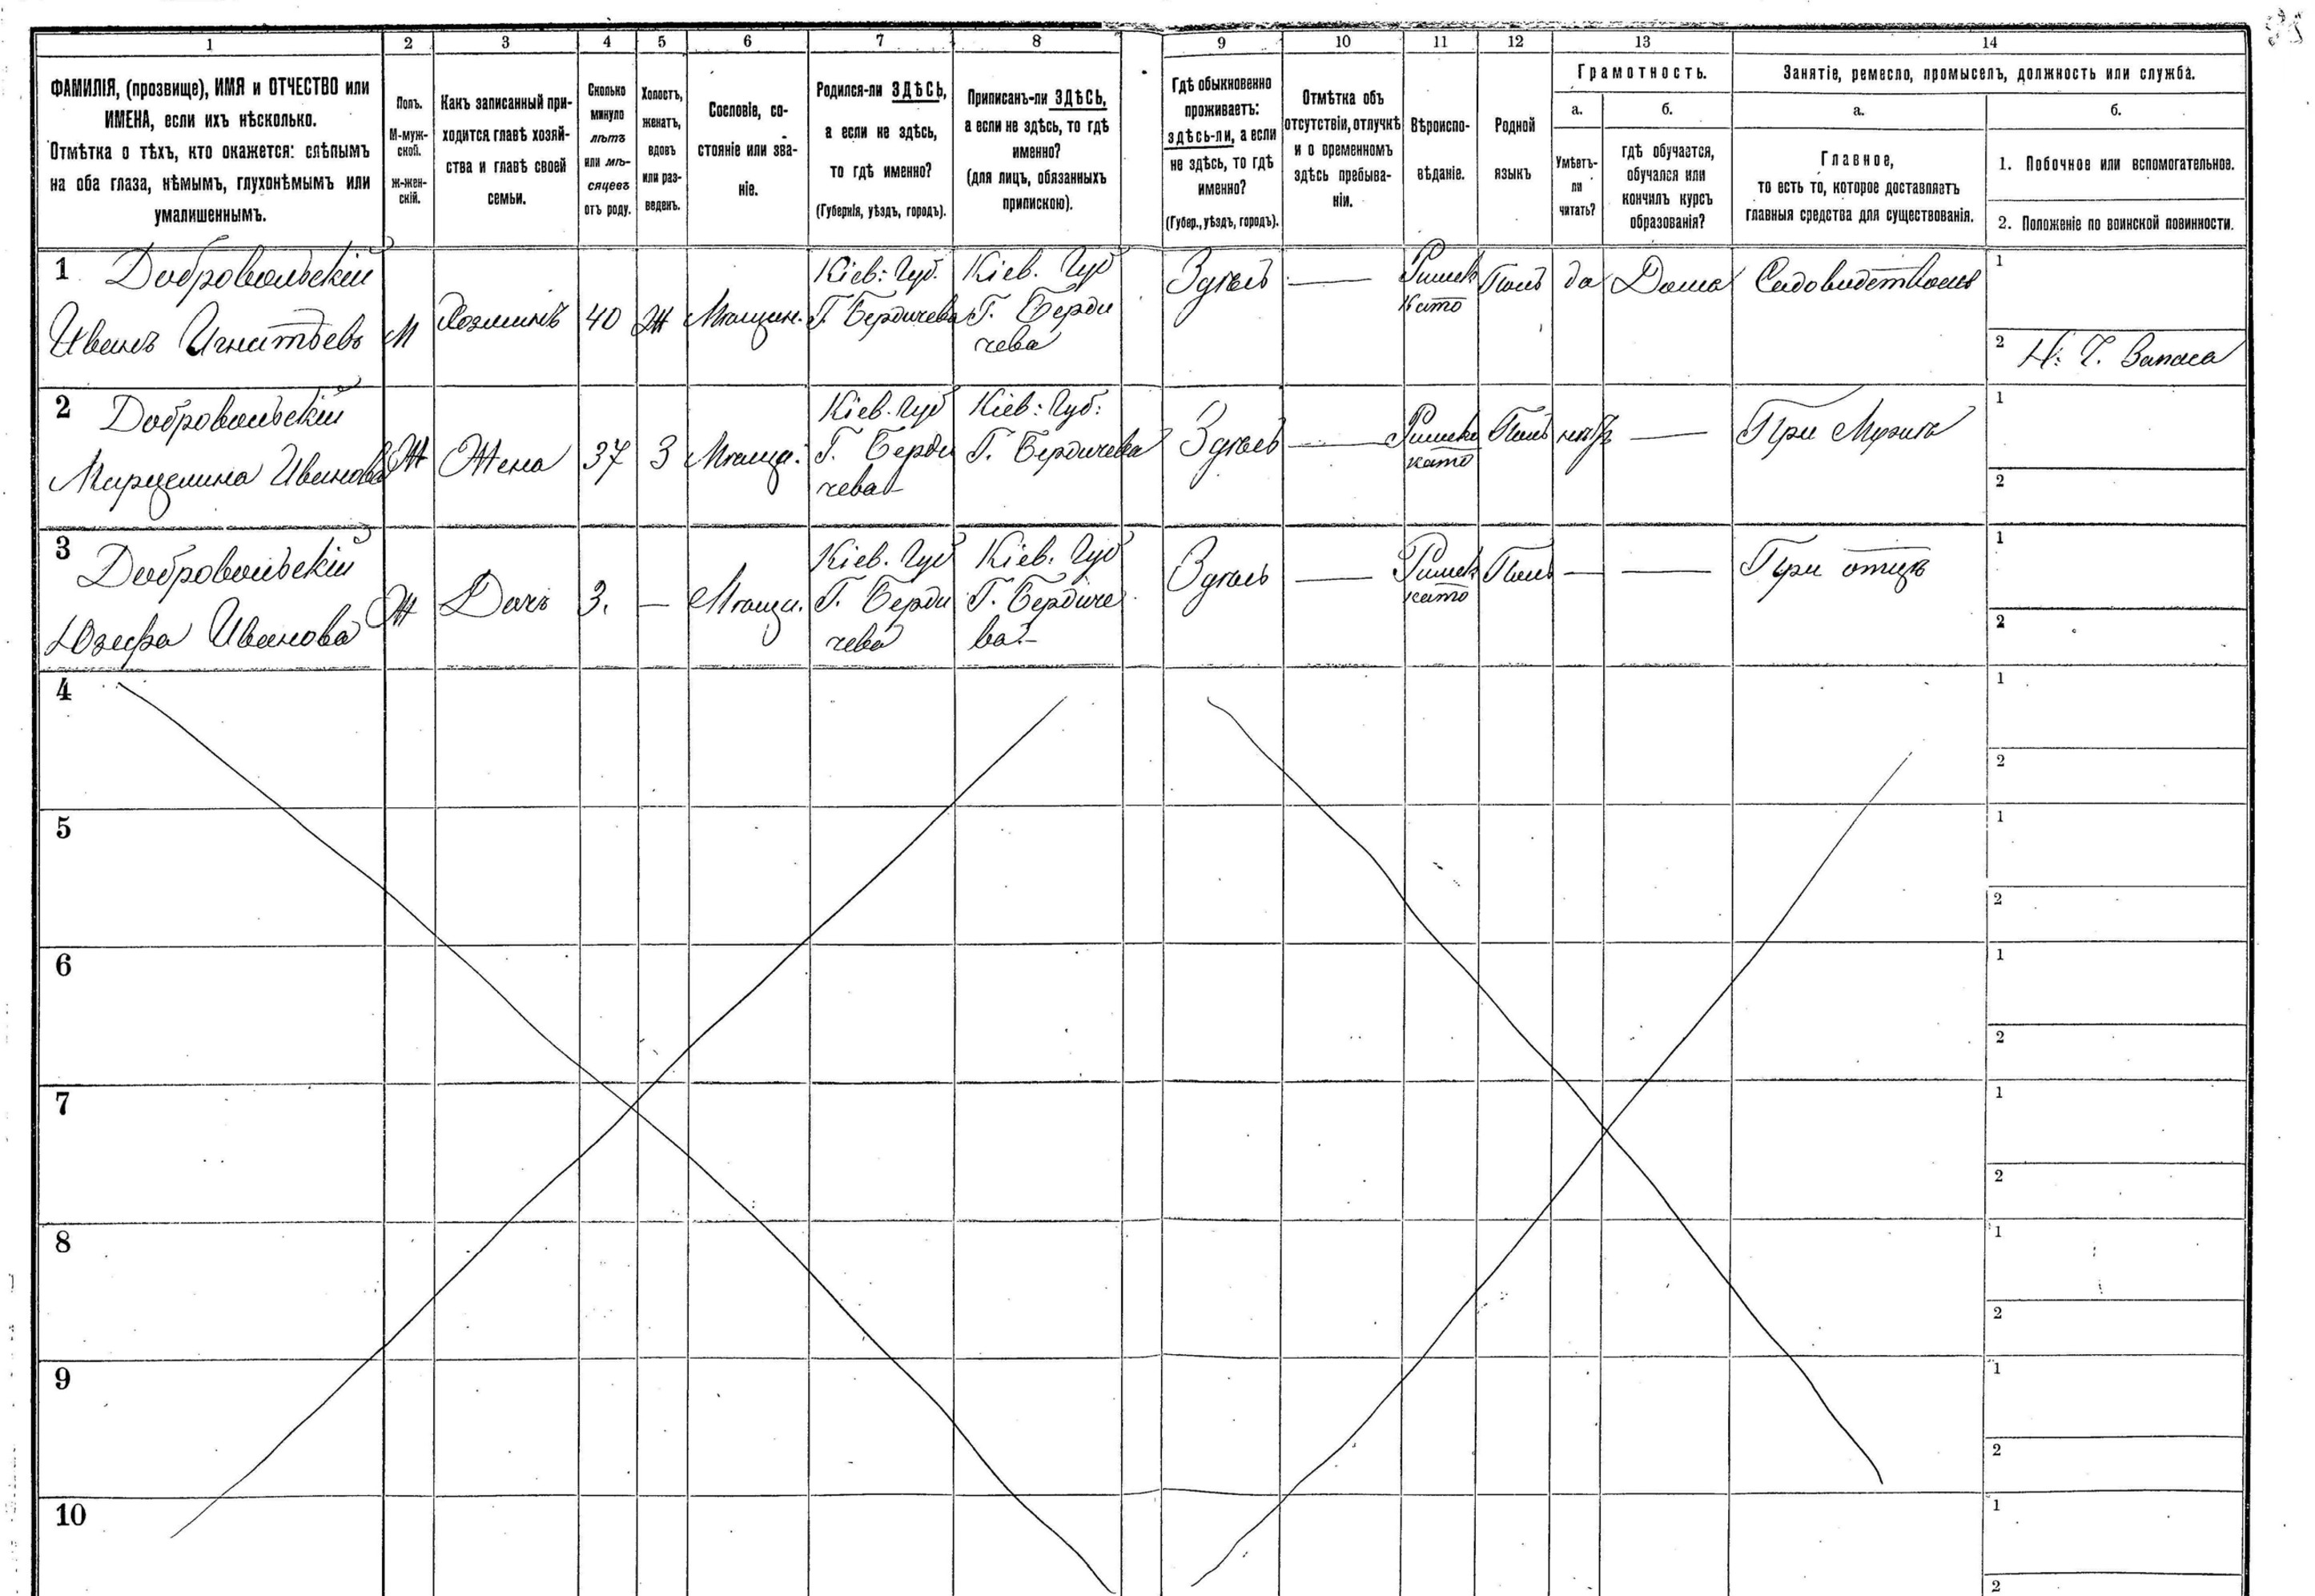 1 2 3 4 5 6 7 8 9 10 11 12 13 14
ФАМИЛІЯ, (прозвище), ИМЯ и ОТЧЕСТВО или
ИМЕНА, если ихъ нѣсколько.
Отмѣтка о тѣхъ, кто окажется: слѣпымъ
на оба глаза, нѣмымъ, глухонѣмымъ или
умалишеннымъ.
Полъ.
М-муж-
ской.
Ж-жен-
скій.
Какъ записанный при-
ходится главѣ хозяй-
ства и главѣ своей
семьи.
Сколько
минуло
лѣтъ
или мѣ-
сяцевъ
отъ роду.
Холостъ,
женатъ,
вдовъ
или раз-
веденъ.
Сословіе, со-
стояніе или зва-
ніе.
Родился-ли ЗДѢСЬ,
а если не здѣсь,
то гдѣ именно?
(Губернія, уѣздъ, городъ).
Приписанъ-ли ЗДѢСЬ,
а если не здѣсь, то гдѣ
именно?
(для лицъ, обязанныхъ
припискою).
Гдѣ обыкновенно
проживаетъ:
здѣсь-ли, а если
не здѣсь, то гдѣ
именно?
(Губер., уѣздъ, городъ).
Отмѣтка объ
отсутствіи, отлучкѣ
и о временномъ
здѣсь пребыва-
ніи.
Вѣроиспо-
вѣданіе.
Родной
языкъ
Грамотность.
а.
Умѣетъ-
ли
читать?
б.
гдѣ обучается,
обучался или
кончилъ курсъ
образованія?
Занятіе, ремесло, промыселъ, должность или служба.
а.
Главное,
то есть то, которое доставляетъ
главныя средства для существованія.
б.
1. Побочное или вспомогательное.
2. Положеніе по воинской повинности.
1 Добровольскій
Иванъ Игнатьевъ
М
Хозяинъ
40
Ж
Мѣщан.
Кіев: Губ.
Г. Бердичева
Кіев. Губ
Г. Берди
чева
Здѣсь
—
Римск
като
Поль
да
Дома
Садоводством
1
2 Н. Ч. Запаса
2 Добровольскій
Марцелина Иванова
Ж
Жена
37
З
Мѣща.
Кіев. Губ
Г. Берди
чева
Кіев: Губ:
Г. Бердичева
Здѣсь
—
Римск
като
Поль
нѣтъ
—
При Мужѣ
1
2
3 Добровольскій
Юзефа Иванова
Ж
Дочь
3.
—
Мѣща.
Кіев. Губ
Г. Берди
чева
Кіев. Губ
Г. Бердиче
ва.
Здѣсь
—
Римск
като
Поль
—
—
При отцѣ
1
2
4
1
2
5
1
2
6
1
2
7
1
2
8
1
2
9
1
2
10
1
2